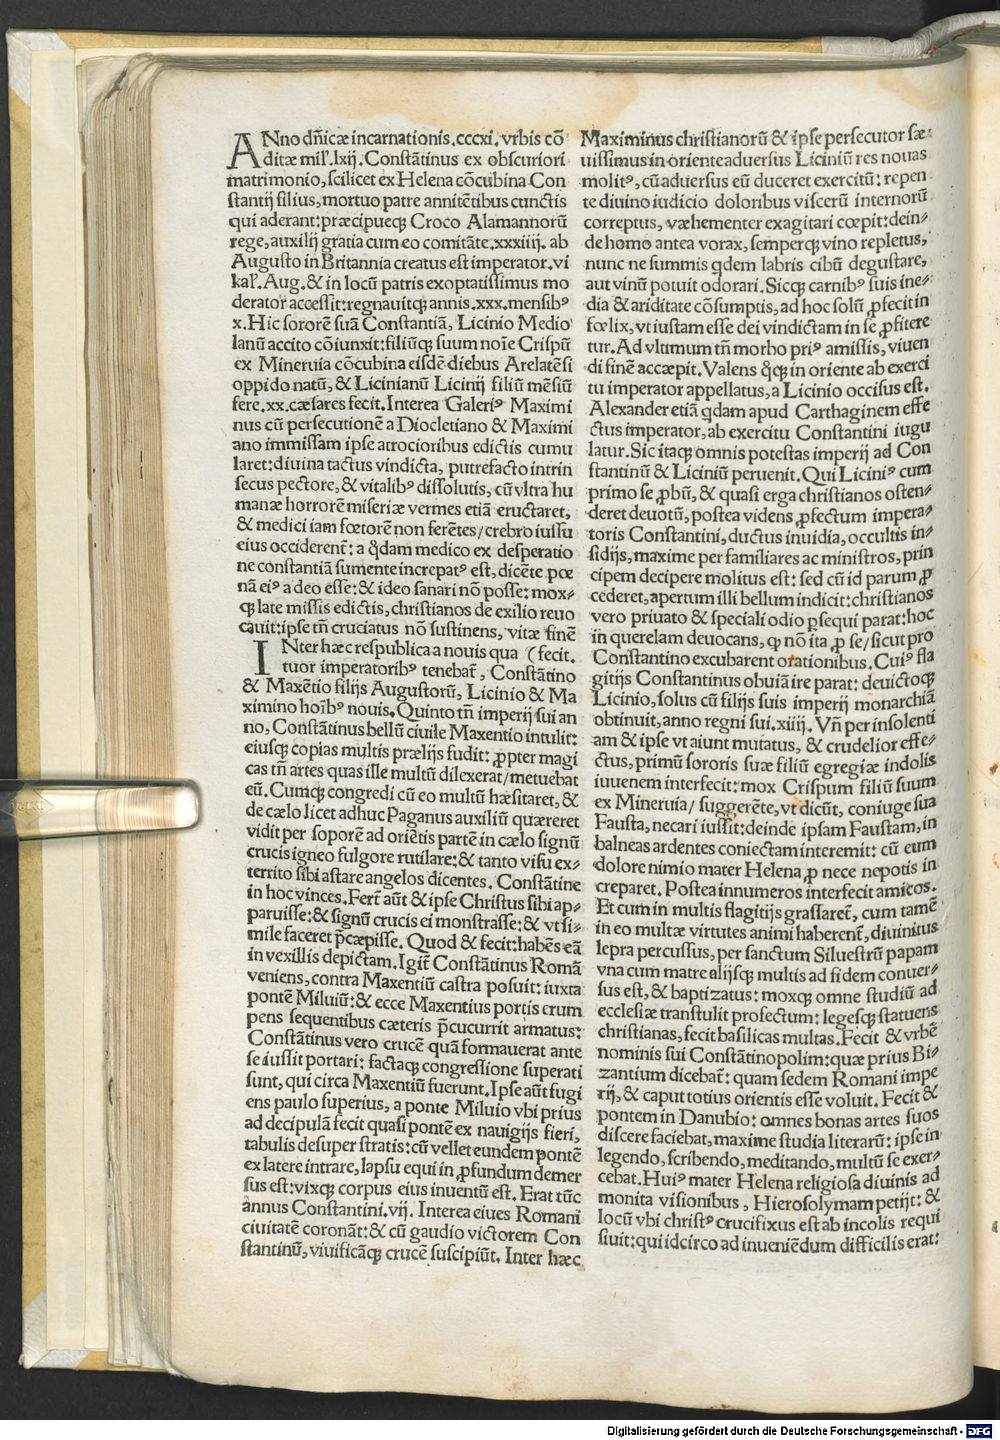 ANno dñicæ incarnationis.cccxi.vrbis cõ
ditæ mil'.lxij.Constãtinus ex obscuriori
matrimonio,scilicet ex Helena cõcubina Con
stantij filius,mortuo patre annitẽtibus cunctis
qui aderant:præcipueqꝫ Croco Alamannorũ
rege,auxilij gratia cum eo comitãte.xxxiiij. ab
Augusto in Britannia creatus est imperator.vi
kal'.Aug.& in locũ patris exoptatissimus mo
derator accessit:regnauitqꝫ annis.xxx.mensibꝰ
x.Hic sororẽ suã Constantiã, Licinio Medio
lanũ accito cõiunxit:filiũqꝫ suum noĩe Crispũ
ex Mineruia cõcubina eisdẽ diebus Arelatẽsi
oppido natũ, & Licinianũ Licinij filiũ mẽsiũ
fere.xx.cæsares fecit.Interea Galeriꝰ Maximi
nus cũ persecutionẽ a Diocletiano & Maximi
ano immissam ipse atrocioribus edictis cumu
laret:diuina tactus vindicta, putrefacto intrin
secus pectore,& vitalibꝰ dissolutis, cũ vltra hu
manæ horrorẽ miseriæ vermes etiã eructaret,
& medici iam fœtorẽ non ferẽtes/crebro iussu
eius occiderent̃: a q̃dam medico ex desperatio
ne constantiã sumente increpatꝰ est, dicẽte pœ
nã eiꝰ a deo esse:& ideo sanari nõ posse: mox⸗
qꝫ late missis edictis, christianos de exilio reuo
cauit:ipse tñ cruciatus nõ sustinens, vitæ finẽ
INter hæc respublica a nouis qua (fecit.
tuor imperatoribꝰ tenebat̃, Constãtino
& Maxẽtio filijs Augustorũ, Licinio & Ma
ximino hoĩbꝰ nouis.Quinto tñ imperij sui an
no, Constãtinus bellũ ciuile Maxentio intulit:
eiusqꝫ copias multis prælijs fudit: ꝓpter magi
cas tñ artes quas ille multũ dilexerat/metuebat
eũ.Cumqꝫ congredi cũ eo multũ hæsitaret, &
de cælo licet adhuc Paganus auxiliũ quæreret
vidit per soporẽ ad oriẽtis partẽ in cælo signũ
crucis igneo fulgore rutilare:& tanto visu ex⸗
territo sibi astare angelos dicentes. Constãtine
in hoc vinces.Fert̃ aũt & ipse Christus sibi ap⸗
paruisse:& signũ crucis ei monstrasse:& vt si⸗
mile faceret p̃cæpisse. Quod & fecit:habẽs eã
in vexillis depictam.Igit̃ Constãtinus Romã
veniens,contra Maxentiũ castra posuit: iuxta
pontẽ Miluiũ:& ecce Maxentius portis erum
pens sequentibus cæteris p̃cucurrit armatus:
Constãtinus vero crucẽ quã formauerat ante
se iussit portari: factaqꝫ congressione superati
sunt, qui circa Maxentiũ fuerunt.Ipse aũt fugi
ens paulo superius, a ponte Miluio vbi prius
ad decipulã fecit quasi pontẽ ex nauigijs fieri,
tabulis desuper stratis:cũ vellet eundem pontẽ
ex latere intrare, lapsu equi in ꝓfundum demer
sus est:vixqꝫ corpus eius inuentũ est. Erat tũc
annus Constantini.vij. Interea ciues Romani
ciuitatẽ coronãt:& cũ gaudio victorem Con
stantinũ, viuificãqꝫ crucẽ suscipiũt. Inter hæc
Maximinus christianorũ & ipse persecutor sæ⸗
uissimus in oriente aduersus Liciniũ res nouas
molitꝰ, cũ aduersus eũ duceret exercitũ: repen
te diuino iudicio doloribus viscerũ internorũ
correptus, væhementer exagitari cœpit:dein⸗
de homo antea vorax, semperqꝫ vino repletus,
nunc ne summis q̃dem labris cibũ degustare,
aut vinũ potuit odorari. Sicqꝫ carnibꝰ suis ine⸗
dia & ariditate cõsumptis, ad hoc solũ ꝓfecit in
fœlix, vt iustam esse dei vindictam in se ꝓfitere
tur. Ad vltimum tñ morbo priꝰ amissis, viuen
di finẽ accæpit. Valens q̃qꝫ in oriente ab exerci
tu imperator appellatus, a Licinio occisus est.
Alexander etiã q̃dam apud Carthaginem effe
ctus imperator, ab exercitu Constantini iugu
latur. Sic itaqꝫ omnis potestas imperij ad Con
stantinũ & Liciniũ peruenit. Qui Liciniꝰ cum
primo se ꝓbũ, & quasi erga christianos osten⸗
deret deuotũ, postea videns ꝓfectum impera⸗
toris Constantini, ductus inuidia, occultis in⸗
sidijs, maxime per familiares ac ministros, prin
cipem decipere molitus est: sed cũ id parum ꝓ
cederet, apertum illi bellum indicit: christianos
vero priuato & speciali odio ꝑsequi parat: hoc
in querelam deuocans, ꝙ nõ ita ꝓ se/sicut pro
Constantino excubarent orationibus. Cuiꝰ fla
gitijs Constantinus obuiã ire parat: deuictoqꝫ
Licinio, solus cũ filijs suis imperij monarchiã
obtinuit, anno regni sui.xiiij. Vñ per insolenti
am & ipse vt aiunt mutatus, & crudelior effe⸗
ctus, primũ sororis suæ filiũ egregiæ indolis
iuuenem interfecit: mox Crispum filiũ suum
ex Mineruia/ suggerẽte, vt dicũt, coniuge sua
Fausta, necari iussit: deinde ipsam Faustam, in
balneas ardentes coniectam interemit: cũ eum
dolore nimio mater Helena ꝓ nece nepotis in
creparet. Postea innumeros interfecit amicos.
Et cum in multis flagitijs grassaret̃, cum tamẽ
in eo multæ virtutes animi haberent̃, diuinitus
lepra percussus, per sanctum Siluestrũ papam
vna cum matre alijsqꝫ multis ad fidem conuer⸗
sus est, & baptizatus: moxqꝫ omne studiũ ad
ecclesiæ transtulit profectum: legesqꝫ statuens
christianas, fecit basilicas multas. Fecit & vrbẽ
nominis sui Constãtinopolim: quæ prius Bi⸗
zantium dicebat̃: quam sedem Romani impe
rij, & caput totius orientis esse voluit. Fecit &
pontem in Danubio: omnes bonas artes suos
discere faciebat, maxime studia literarũ: ipse in
legendo, scribendo, meditando, multũ se exer⸗
cebat. Huiꝰ mater Helena religiosa diuinis ad
monita visionibus, Hierosolymam petijt: &
locũ vbi christꝰ crucifixus est ab incolis requi
siuit: qui idcirco ad inueniẽdum difficilis erat:
Digitalisierung gefördert durch die Deutsche Forschungsgemeinschaft - DFG